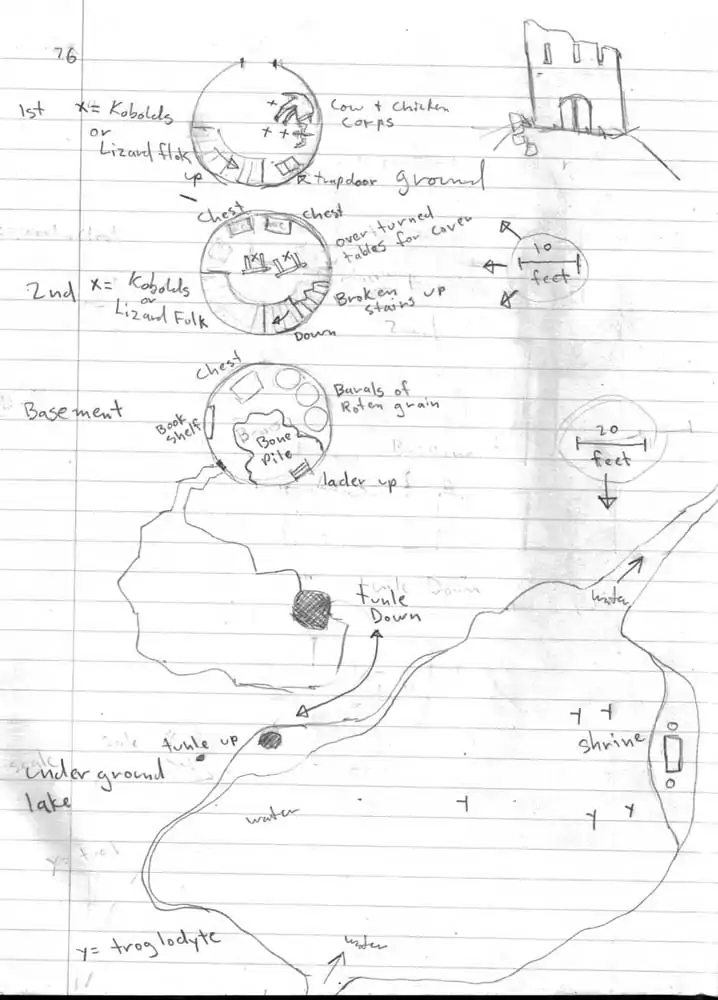 76
1st
x= Kobolds
or
Lizard flok
up
Cow + Chicken
Corps
trapdoor
ground
chest
chest
overturned
tables for cover
2nd
x= Kobolds
or
Lizard Folk
x
x
Broken
stairs up
Down
10
feet
Chest
Basement
Book
shelf
Barals of
Roten grain
Bone
pile
lader up
20
feet
tunle
Down
water
tunle up
under ground
lake
Y Y
shrine
water
Y
Y Y
y= troglodyte
water